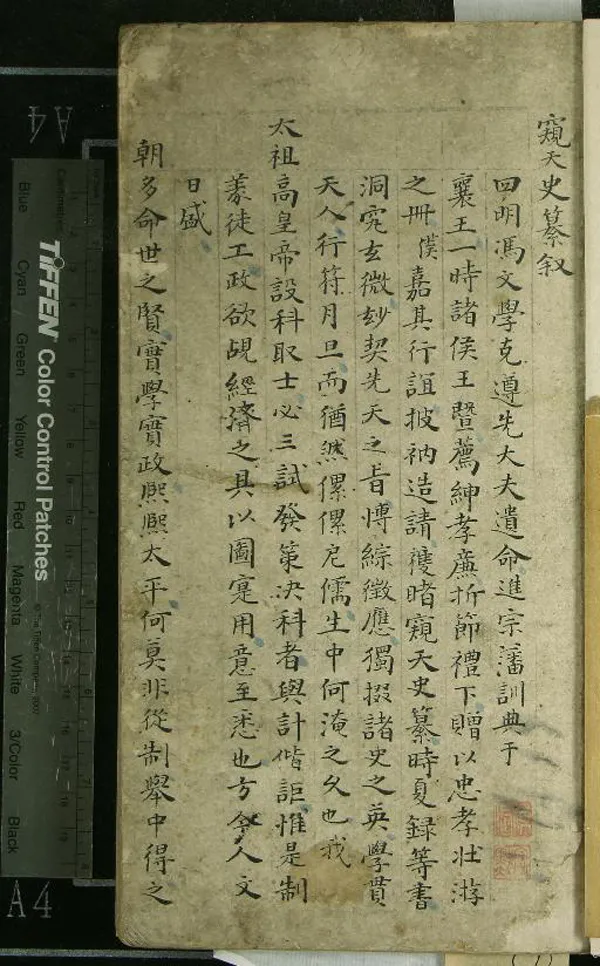 窺天史纂叙
四明馮文學克遵先大夫遺命進宗藩訓典于
襄王一時諸侯王暨薦紳孝廉折節禮下贈以忠孝壯游
之冊僕嘉其行誼披衲造請獲睹窺天史纂時夏録等書
洞究玄微玅契先天之旨博綜徵應獨掇諸史之英學貫
天人行符月旦而猶然傫傫厄儒生中何淹之久也我
太祖高皇帝設科取士必三試發策決科者與計偕詎惟是制
義徒工政欲覘經濟之具以圖寔用意至悉也方今人文
日盛
朝多命世之賢實學實政熙熙太平何莫非從制舉中得之
TIFFEN Color Control Patches
© The Tiffen Company, 2007
Centimetres
Blue
Cyan
Green
Yellow
Red
Magenta
White
3/Color
Black
A4
A4